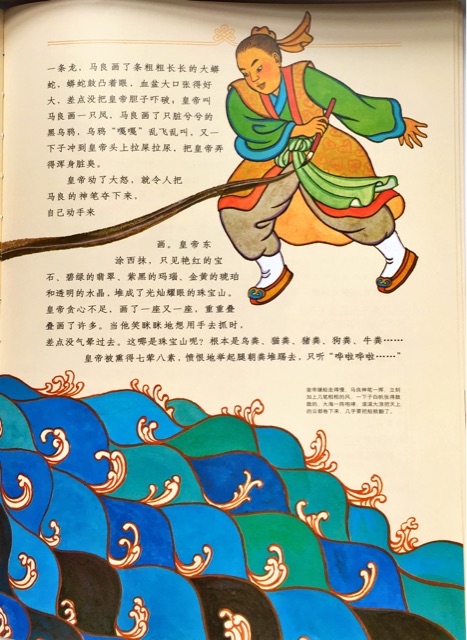 一条龙，马良画了条粗粗长长的大蟒
蛇，蟒蛇鼓凸着眼，血盆大口张得好
大，差点没把皇帝胆子吓破；皇帝叫
马良画一只凤，马良画了只脏兮兮的
黑乌鸦，乌鸦“嘎嘎”乱飞乱叫，又一
下子冲到皇帝头上拉屎拉尿，把皇帝弄
得浑身脏臭。
皇帝动了大怒，就令人把
马良的神笔夺下来，
自己动手来
画。皇帝东
涂西抹，只见艳红的宝
石、碧绿的翡翠、紫黑的玛瑙、金黄的琥珀
和透明的水晶，堆成了光灿耀眼的珠宝山。
皇帝贪心不足，画了一座又一座，重重叠
叠画了许多。当他笑眯眯地想用手去抓时，
差点没气晕过去。这哪是珠宝山呢？根本是鸟粪、猫粪、猪粪、狗粪、牛粪……
皇帝被熏得七荤八素，愤恨地举起腿朝粪堆踹去，只听“哗啦哗啦……”
皇帝嫌船走得慢，马良神笔一挥，立刻
加上几笔粗粗的风，一下子白帆张得鼓
鼓的，大海一阵咆哮，滔滔大浪把天上
的云都卷下来，几乎要把船掀翻了。